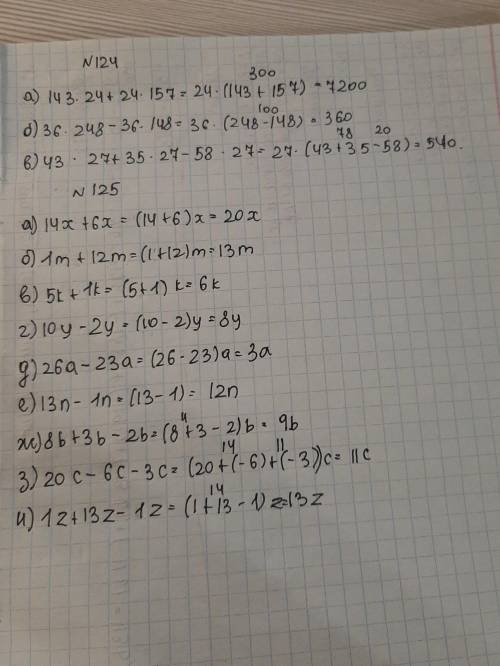 №124
300
а) 143·24+24·157=24·(143+157)=7200
100
б) 36·248-36·148=36·(248-148)=360
78 20
в) 43·27+35·27-58·27=27·(43+35-58)=540.
№125
а) 14x+6x=(14+6)x=20x
б) 1m+12m=(1+12)m=13m
в) 5k+1k=(5+1)k=6k
г) 10y-2y=(10-2)y=8y
д) 26a-23a=(26-23)a=3a
е) 13n-1n=(13-1)=12n
ж) 8b+3b-2b=(8+3-2)b=9b
14 11
з) 20c-6c-3c=(20+(-6)+(-3))c=11c
14
и) 1z+13z-1z=(1+13-1)z=13z